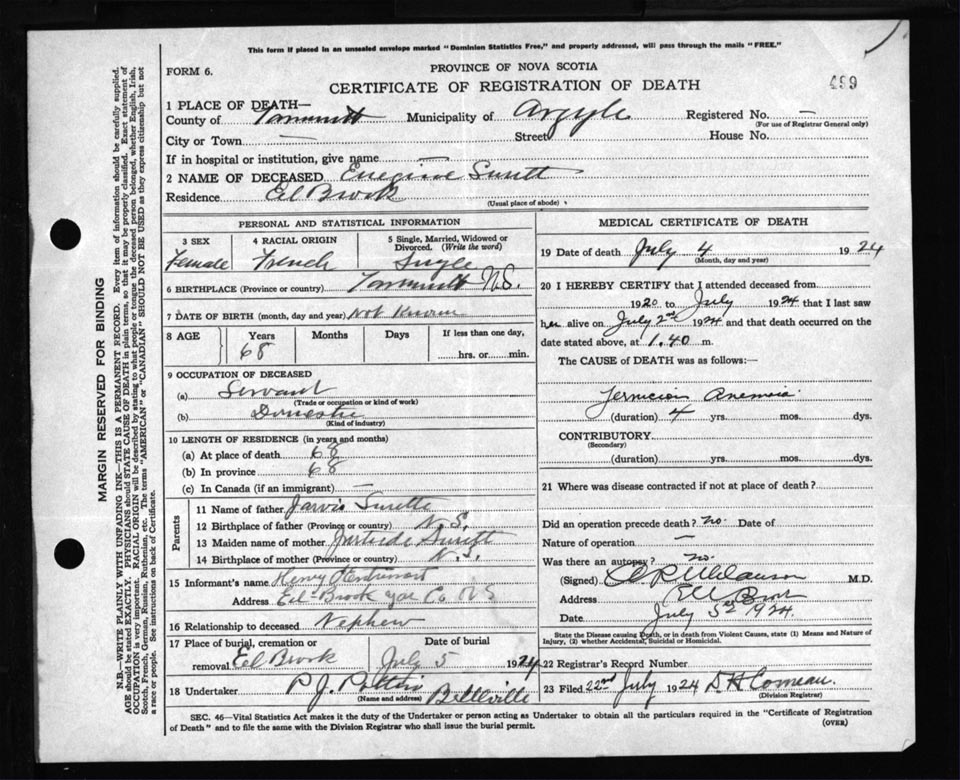 This form if placed in an unsealed envelope marked "Dominion Statistics Free," and properly addressed, will pass through the mails "FREE."
FORM 6.
PROVINCE OF NOVA SCOTIA
CERTIFICATE OF REGISTRATION OF DEATH
499
1 PLACE OF DEATH—
County of Yarmouth Municipality of Argyle Registered No. —
(For use of Registrar General only)
City or Town — Street House No.
If in hospital or institution, give name —
2 NAME OF DECEASED Surett
Residence Eel Brook
(Usual place of abode)
PERSONAL AND STATISTICAL INFORMATION
3 SEX Female
4 RACIAL ORIGIN French
5 Single, Married, Widowed or Divorced. (Write the word) Single
6 BIRTHPLACE (Province or country) Yarmouth N.S.
7 DATE OF BIRTH (month, day and year) Not Known
8 AGE Years Months Days If less than one day,
68 hrs. or min.
9 OCCUPATION OF DECEASED
(a) Servant
(Trade or occupation or kind of work)
(b) Domestic
(Kind of industry)
10 LENGTH OF RESIDENCE (in years and months)
(a) At place of death 68
(b) In province 68
(c) In Canada (if an immigrant) —
Parents
11 Name of father Jarvis Surette
12 Birthplace of father (Province or country) N.S.
13 Maiden name of mother Gertrude Surett
14 Birthplace of mother (Province or country) N.S.
15 Informant's name Henry
Address Eel-Brook Yar Co NS
16 Relationship to deceased Nephew
17 Place of burial, cremation or Date of burial
removal Eel Brook July 5 1924
18 Undertaker P. J. Belleville
(Name and address)
MEDICAL CERTIFICATE OF DEATH
19 Date of death July 4 1924
(Month, day and year)
20 I HEREBY CERTIFY that I attended deceased from
1920 to July 1924 that I last saw
her alive on July 2nd 1924 and that death occurred on
date stated above, at 1.40 m.
The CAUSE of DEATH was as follows:—
Pernicious Anemia
(duration) 4 yrs. mos. dys.
CONTRIBUTORY
(Secondary)
(duration) yrs. mos. dys.
21 Where was disease contracted if not at place of death?
Did an operation precede death? no. Date of
Nature of operation —
Was there an autopsy? no.
(Signed) M.D.
Address Eel Brook
Date July 5th 1924.
State the Disease causing Death, or in death from Violent Causes, state (1) Means and Nature of
Injury, (2) whether Accidental, Suicidal or Homicidal.
22 Registrar's Record Number
23 Filed 22nd July 1924 D H Comeau.
(Division Registrar)
SEC. 46—Vital Statistics Act makes it the duty of the Undertaker or person acting as Undertaker to obtain all the particulars required in the "Certificate of Registration
of Death" and to file the same with the Division Registrar who shall issue the burial permit.
(OVER)
MARGIN RESERVED FOR BINDING
N.B.—WRITE PLAINLY WITH UNFADING INK—THIS IS A PERMANENT RECORD. Every item of information should be carefully supplied.
AGE should be stated EXACTLY. PHYSICIANS should STATE CAUSE OF DEATH in plain terms, so that it may be properly classified. Exact statement of
OCCUPATION is very important. RACIAL ORIGIN will be described by stating to what people or tongue the deceased person belonged, whether English, Irish,
Scotch, French, German, Russian, Ruthenian, etc. The terms "AMERICAN" or "CANADIAN" SHOULD NOT BE USED as they express citizenship but not
a race or people. See instructions on back of Certificate.